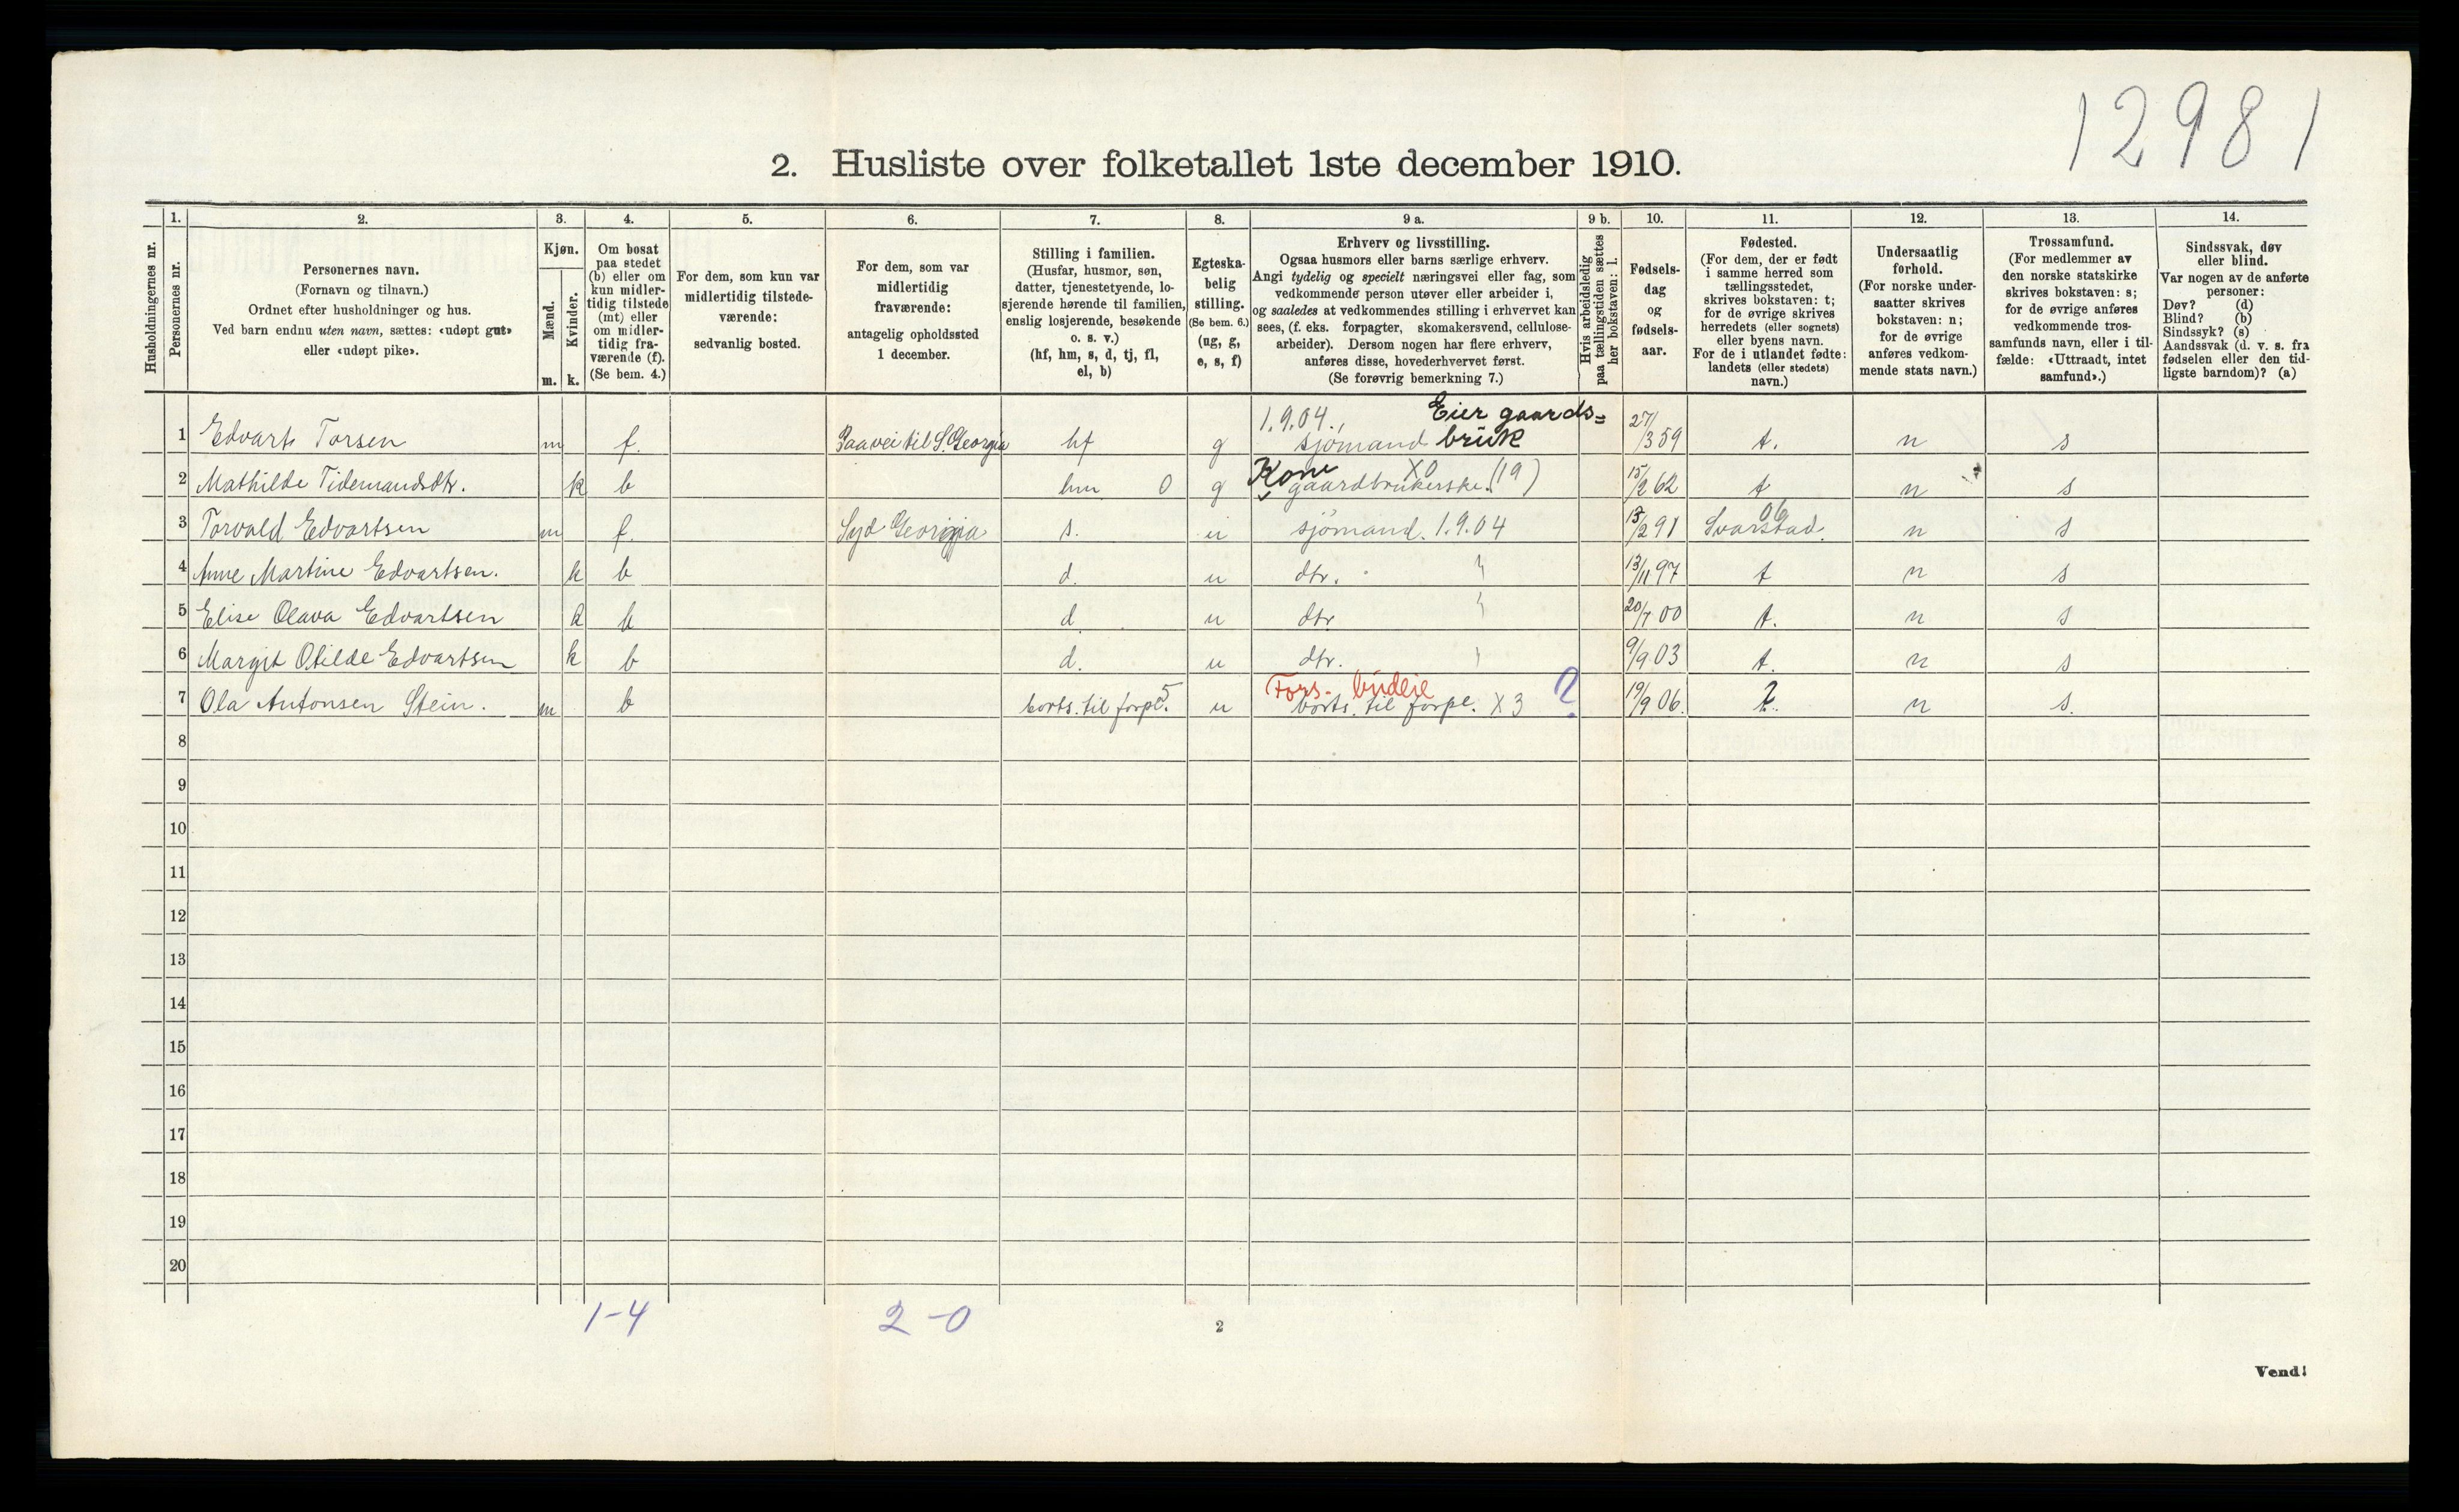 12981
2. Husliste over folketallet 1ste december 1910.
Husholdningernes nr.
1.
Personernes nr.
2.
Personernes navn.
(Fornavn og tilnavn.)
Ordnet efter husholdninger og hus.
Ved barn endnu uten navn, sættes: «udøpt gut»
eller «udøpt pike».
3.
Kjøn.
Mænd.
Kvinder.
m. k.
4.
Om bosat
paa stedet
(b) eller om
kun midler-
tidig tilstede
(mt) eller
om midler-
tidig fra-
værende (f).
(Se bem. 4.)
5.
For dem, som kun var
midlertidig tilstede-
værende:
sedvanlig bosted.
6.
For dem, som var
midlertidig
fraværende:
antagelig opholdssted
1 december.
7.
Stilling i familien.
(Husfar, husmor, søn,
datter, tjenestetyende, lo-
sjerende hørende til familien,
enslig losjerende, besøkende
o. s. v.)
(hf, hm, s, d, tj, fl,
el, b)
8.
Egteska-
belig
stilling.
(Se bem. 6.)
(ug, g,
e, s, f)
9 a.
Erhverv og livsstilling.
Ogsaa husmors eller barns særlige erhverv.
Angi tydelig og specielt næringsvei eller fag, som
vedkommende person utøver eller arbeider i,
og saaledes at vedkommendes stilling i erhvervet kan
sees, (f. eks. forpagter, skomakersvend, cellulose-
arbeider). Dersom nogen har flere erhverv,
anføres disse, hovederhvervet først.
(Se forøvrig bemerkning 7.)
9 b.
Hvis arbeidsledig
paa tællingstiden sættes
her bokstaven: l.
10.
Fødsels-
dag
og
fødsels-
aar.
11.
Fødested.
(For dem, der er født
i samme herred som
tællingsstedet,
skrives bokstaven: t;
for de øvrige skrives
herredets (eller sognets)
eller byens navn.
For de i utlandet fødte:
landets (eller stedets)
navn.)
12.
Undersaatlig
forhold.
(For norske under-
saatter skrives
bokstaven: n;
for de øvrige
anføres vedkom-
mende stats navn.)
13.
Trossamfund.
(For medlemmer av
den norske statskirke
skrives bokstaven: s;
for de øvrige anføres
vedkommende tros-
samfunds navn, eller i til-
fælde: «Uttraadt, intet
samfund».)
14.
Sindssvak, døv
eller blind.
Var nogen av de anførte
personer:
Døv? (d)
Blind? (b)
Sindssyk? (s)
Aandssvak (d. v. s. fra
fødselen eller den tid-
ligste barndom)? (a)
1.9.04., Eier gaards=
1 Edvart Torsen m f. Paa vei til S. Georgia hf g sjömand bruk 27/3 59 t. n s
Kone X0 (19)
2 Mathilde Tidemandsdtr. k b hm 0 g gaardbrukerske. 15/2 62 t n s
3 Torvald Edvartsen m f. Syd Georgia s. u sjömand. 1.9.04 /2 91 Svarstad. 06 n s
4 Anne Martine Edvartsen. k b d. u dtr. 13/11 97 t n s
5 Elise Olava Edvartsen k b d u dtr 20/7 00 t. n s
6 Margit Otilde Edvartsen k b d. u dtr. 9/9 03 t. n s
Fors. budeie ?
7 Ola Antonsen Stein. m b borts. til forpl. 5 u borts. til forpl. X 3 19/9 06. n s.
8
9
10
11
12
13
14
15
16
17
18
19
20
1-4 2-0
2
Vend!